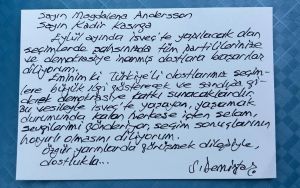 Sayın Magdalena Andersson
Sayın Kadir Kasırga
Eylül ayında İsveç'te yapılacak olan
seçimlerde şahsınızda tüm partililerinize
ve demokrasiye inanmış dostlara başarılar
diliyorum.
Eminim ki Türkiye'li dostlarımız seçim-
lere büyük ilgi gösterecek ve sandığa gi-
derek demokrasiye katkı sunacaklardır.
Bu vesileyle İsveç'te yaşayan, yaşamak
durumunda kalan herkese içten selam,
sevgilerimi gönderiyor, seçim sonuçlarının
hayırlı olmasını diliyorum.
Özgür yarınlarda görüşmek dileğiyle,
dostlukla...
S. Demirtaş